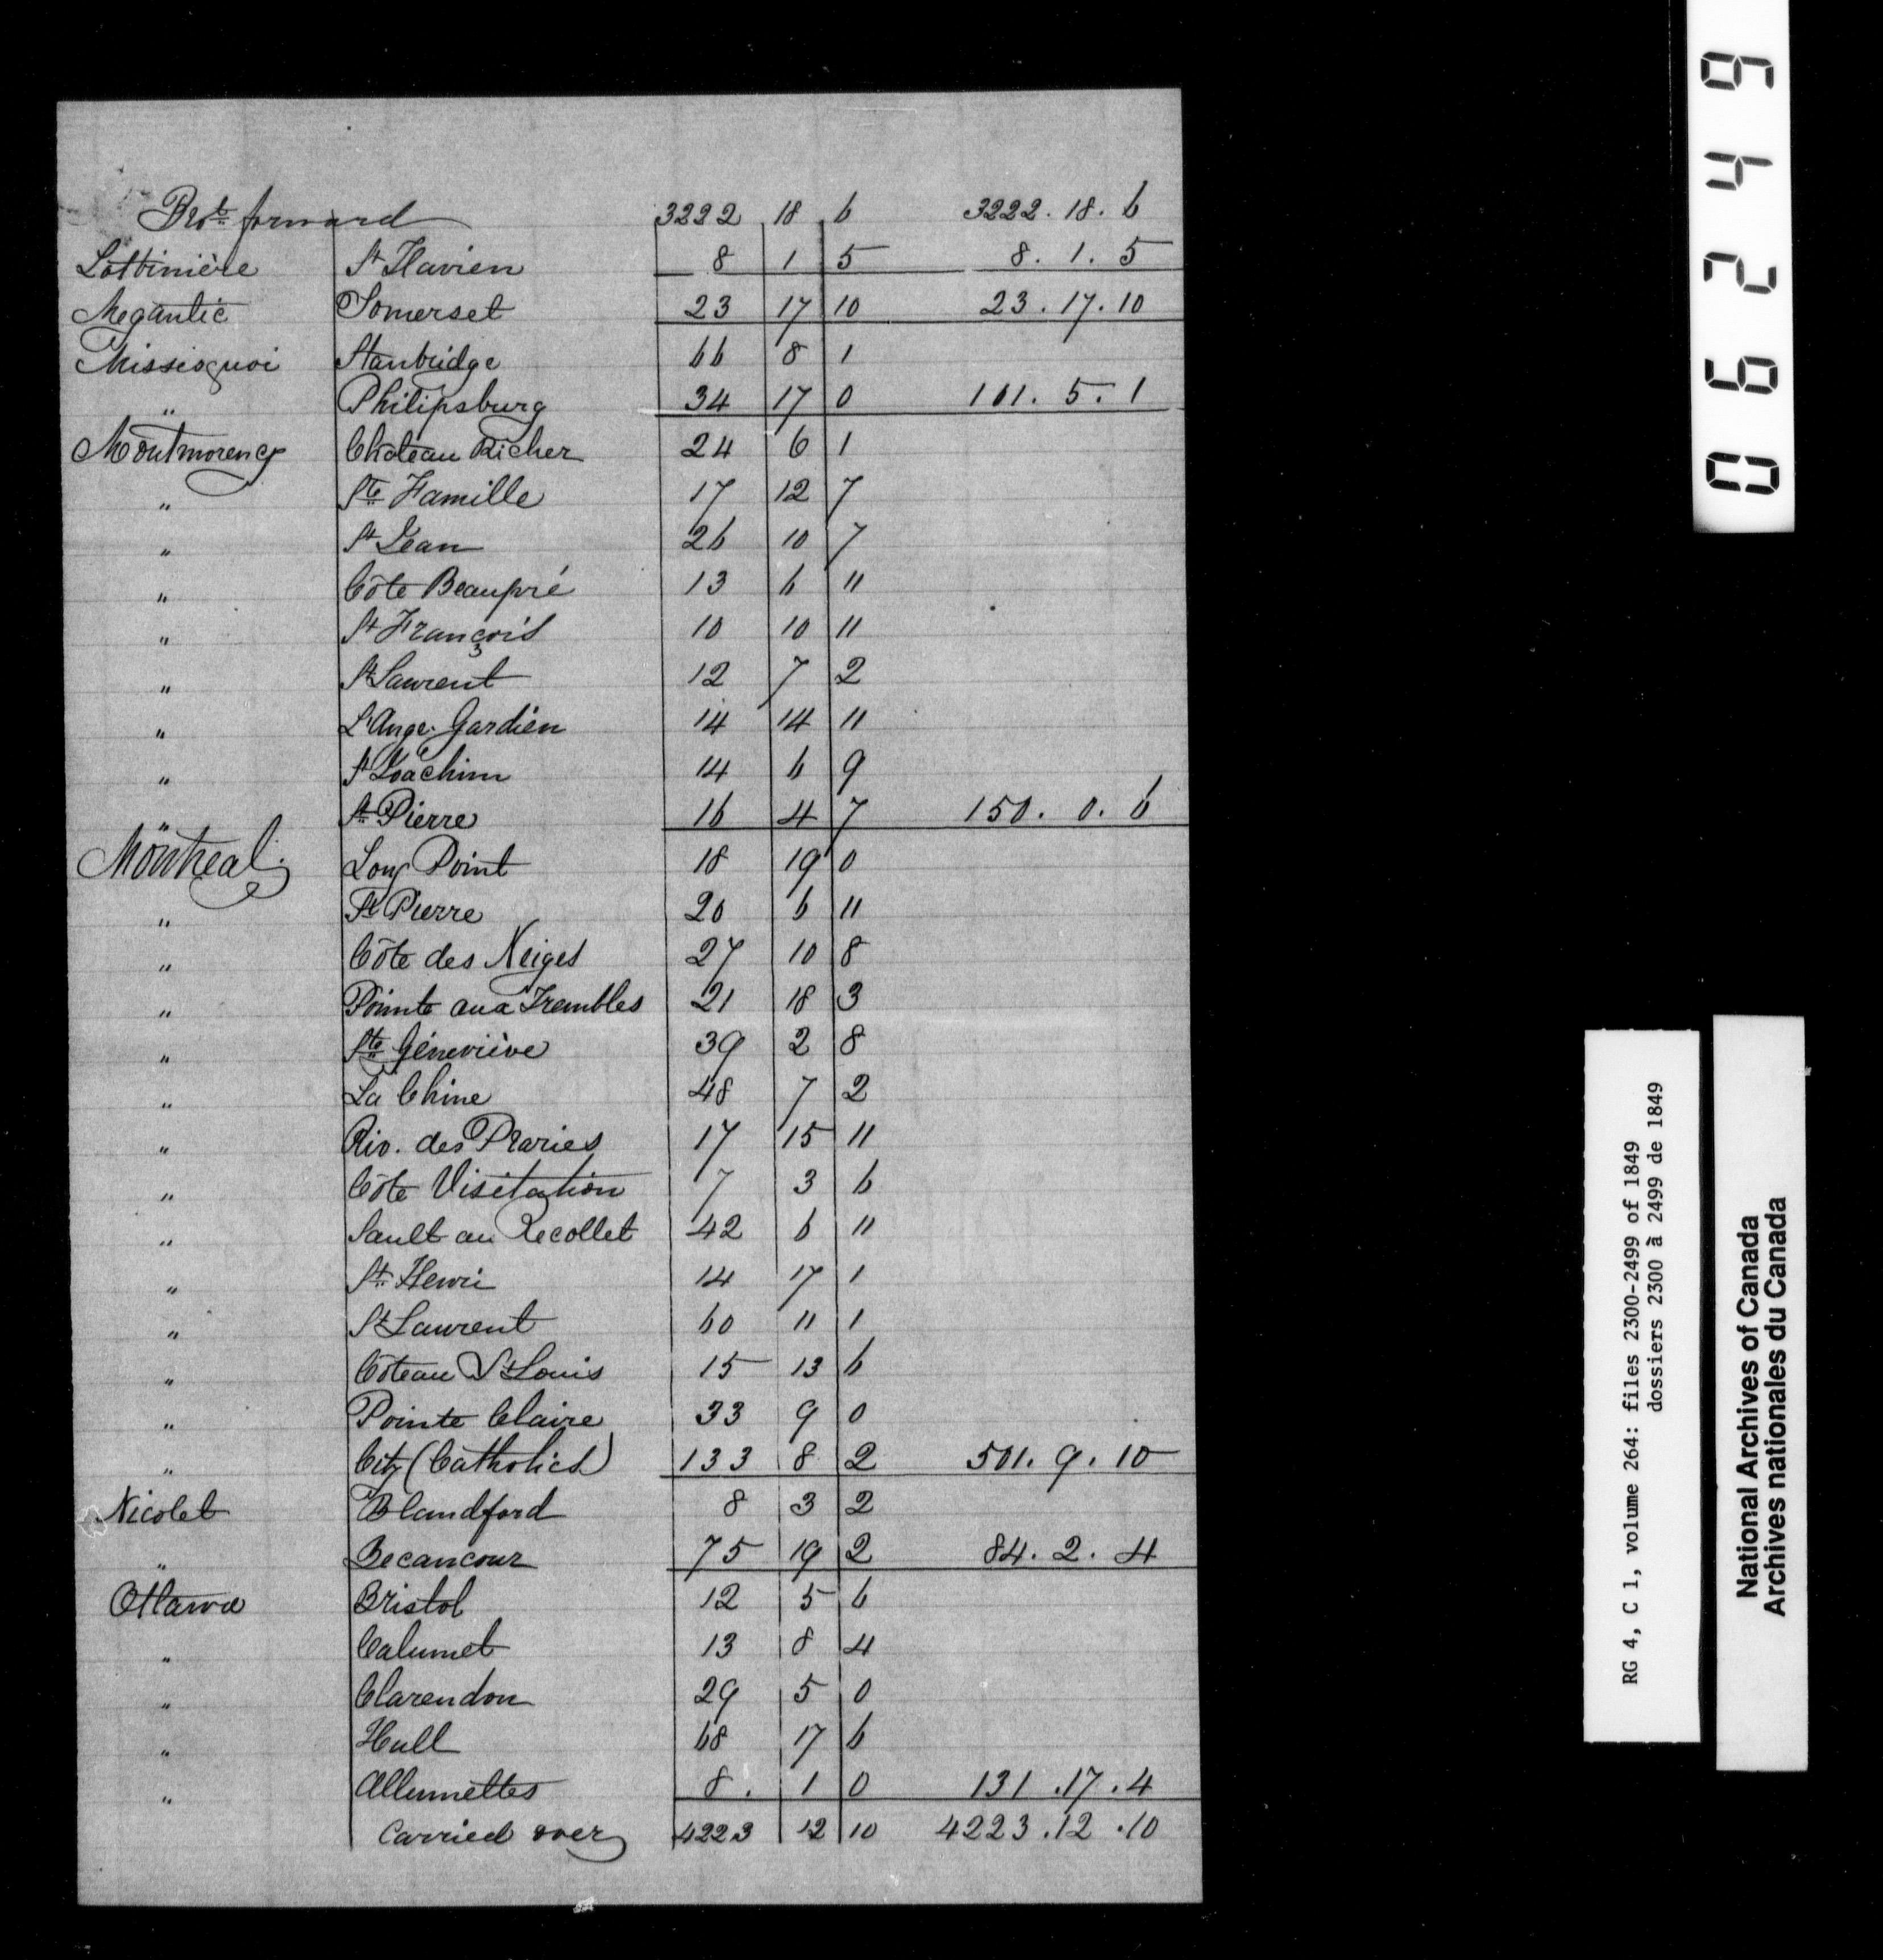 Brot forward 3222 18 6 3222. 18. 6
Lotbinière St Flavien 8 1 5 8. 1. 5
Megantic Somerset 23 17 10 23. 17. 10
Missisquoi Stanbridge 66 8 1
" Philipsburg 34 17 0 101. 5. 1
Montmorency Chateau Richer 24 6 1
" Ste Famille 17 12 7
" St Jean 26 10 7
" Côte Beaupré 13 6 11
" St François 10 10 11
" St Laurent 12 7 2
" L'Ange Gardien 14 14 11
" St Joachim 14 6 9
" St Pierre 16 4 7 150. 0. 6
Montreal Long Point 18 19 0
" St Pierre 20 6 11
" Côte des Neiges 27 10 8
" Pointe aux Trembles 21 18 3
" Ste Géneviève 39 2 8
" La Chine 48 7 2
" Riv. des Praries 17 15 11
" Côte Visitation 7 3 6
" Sault au Recollet 42 6 11
" St Henri 14 17 1
" St Laurent 60 11 1
" Côteau St Louis 15 13 6
" Pointe Claire 33 9 0
" City (Catholics) 133 8 2 501. 9. 10
Nicolet Blandford 8 3 2
" Becancour 75 19 2 84. 2. 4
Ottawa Bristol 12 5 6
" Calumet 13 8 4
" Clarendon 29 5 0
" Hull 68 17 6
" Allumettes 8. 1 0 131. 17. 4
Carried over 4223 12 10 4223. 12. 10
06249
RG 4, C 1, volume 264: files 2300-2499 of 1849
dossiers 2300 à 2499 de 1849
National Archives of Canada
Archives nationales du Canada